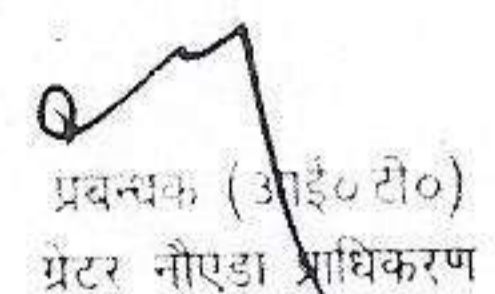 प्रबन्धक (आई० टी०)
ग्रेटर नौएडा प्राधिकरण